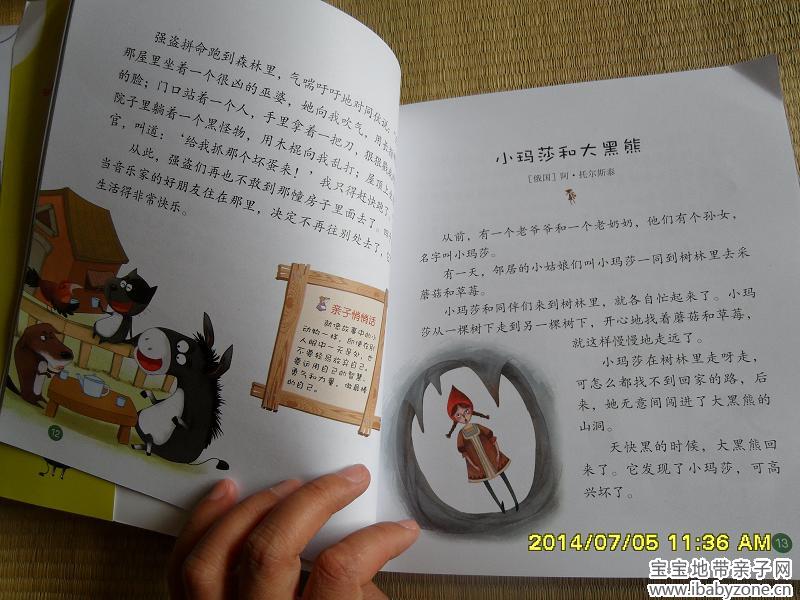 强盗拼命跑到森林里，气喘吁吁地对同伙说：
那屋里坐着一个很凶的巫婆，她向我吹气，用长
的脸；门口站着一个人，手里拿着一把刀，狠狠
院子里躺着一个黑怪物，用木棍向我乱打；屋顶上
官，叫道：‘给我抓那个坏蛋来！’，我只得赶快跑了
从此，强盗们再也不敢到那幢房子里面去了。
当音乐家的好朋友住在那里，决定不再往别处去了，
生活得非常快乐。
亲子悄悄话
就像故事中的小
动物一样，即使在别
人眼中一无是处，也
不要轻易放弃自己。
要运用自己的智慧、
勇气和力量，做最棒
的自己。
12
小玛莎和大黑熊
［俄国］阿·托尔斯泰
从前，有一个老爷爷和一个老奶奶，他们有个孙女，
名字叫小玛莎。
有一天，邻居的小姑娘们叫小玛莎一同到树林里去采
蘑菇和草莓。
小玛莎和同伴们来到树林里，就各自忙起来了。小玛
莎从一棵树下走到另一棵树下，开心地找着蘑菇和草莓，
就这样慢慢地走远了。
小玛莎在树林里走呀走，
可怎么都找不到回家的路，后
来，她无意间闯进了大黑熊的
山洞。
天快黑的时候，大黑熊回
来了。它发现了小玛莎，可高
兴坏了。
13
2014/07/05 11:36 AM
宝宝地带亲子网
www.ibabyzone.cn